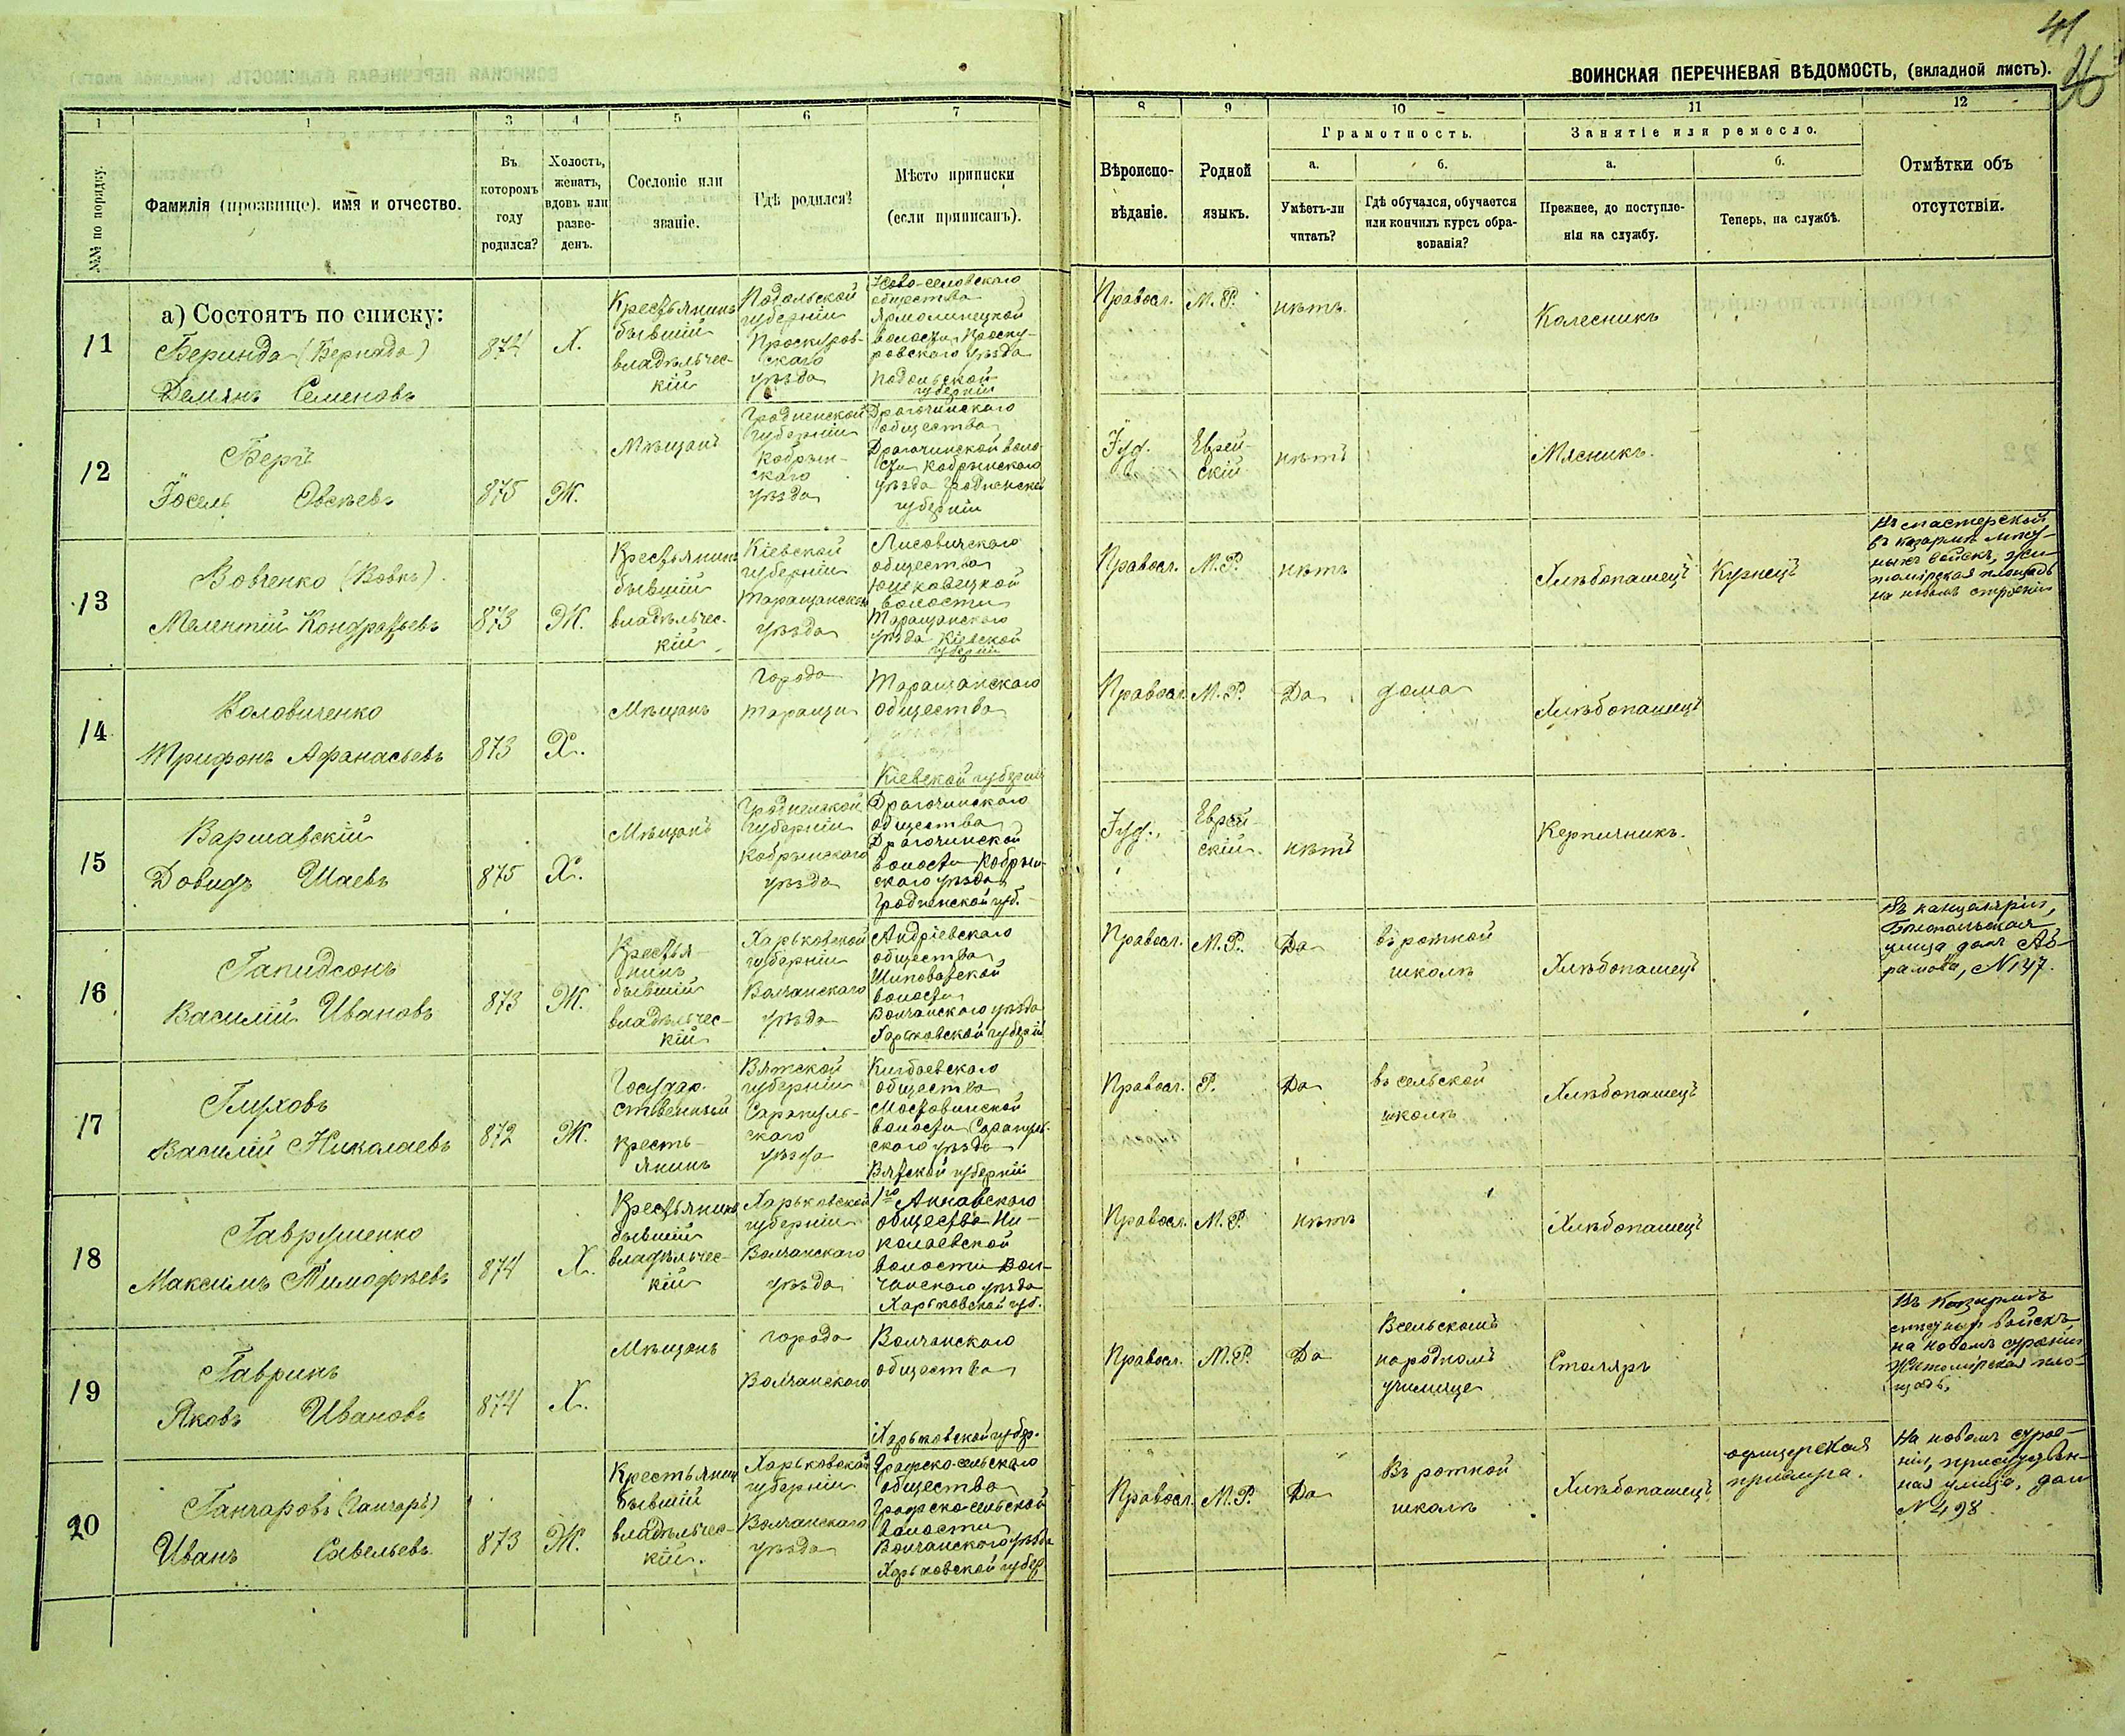 41
26
ВОИНСКАЯ ПЕРЕЧНЕВАЯ ВѢДОМОСТЬ, (вкладной листъ).
1 1 3 4 5 6 7 8 9 10 11 12
№№ по порядку.
Фамилія (прозвище). имя и отчество.
Въ
которомъ
году
родился?
Холостъ,
женатъ,
вдовъ или
разве-
денъ.
Сословіе или
званіе.
Гдѣ родился?
Мѣсто приписки
(если приписанъ).
Вѣроиспо-
вѣданіе.
Родной
языкъ.
Грамотность.
а.
Умѣетъ-ли
читать?
б.
Гдѣ обучался, обучается
или кончилъ курсъ обра-
зованія?
Занятіе или ремесло.
а.
Прежнее, до поступле-
нія на службу.
б.
Теперь, на службѣ.
Отмѣтки объ
отсутствіи.
а) Состоятъ по списку:
11
Беринда (Бернада)
Демянъ Семеновъ
874
Х.
Крестьянинъ
бывшій
владѣльчес-
кій
Подольской
губерніи
Проскуров-
скаго
уѣзда
Ново-селовскаго
общества
Ярмолинецкой
волости Проску-
ровскаго уѣзда
Подольской
губерніи
Правосл.
М.Р.
нѣтъ
Колесникъ
12
Бергъ
Іосель Овсѣевъ
875
Ж.
Мѣщанъ
Гродненской
губерніи
Кобрын-
скаго
уѣзда
Драгочинскаго
общества
Драгочинской воло-
сти Кобрынскаго
уѣзда Гродненской
губерніи
Іуд.
Еврей-
скій
нѣтъ
Мясникъ.
13
Вовченко (Вовкъ).
Мелентій Кондратьевъ
873
Ж.
Крестьянинъ
бывшій
владѣльчес-
кій
Кіевской
губерніи
Таращанской
уѣзда
Лисовичскаго
общества
волости
Таращанскаго
уѣзда Кіевской
губерніи
Правосл.
М.Р.
нѣтъ
Хлѣбопашецъ
Кузнецъ
Въ мастерской
въ казармѣ мѣст-
ныхъ войскъ, жи-
томірская площадь
на новомъ строеніи
14
Воловиченко
Трифонъ Афанасьевъ
873
Х.
Мѣщанъ
города
Таращи
Таращанскаго
общества
Кіевской губерніи
Правосл.
М.Р.
Да
дома
Хлѣбопашецъ
15
Варшавскій
Довидъ Шаевъ
875
Х.
Мѣщанъ
Гродненской
губерніи
Кобрынскаго
уѣзда
Драгочинскаго
общества
Драгочинской
волости Кобрын-
скаго уѣзда
Гродненской губ.
Іуд.
Еврей-
скій.
нѣтъ
Керпичникъ.
16
Гапидсонъ
Василій Ивановъ
873
Ж.
Крестья-
нинъ
бывшій
владѣльчес-
кій
Харьковской
губерніи
Волчанскаго
уѣзда
Андріевскаго
общества
Шиповатской
волости
Волчанскаго уѣзда
Харьковской губерніи
Правосл.
М.Р.
Да
въ ротной
школѣ
Хлѣбопашецъ
Въ канцеляріи,
улица домъ Аб-
рамова, №147.
17
Глуховъ
Василій Николаевъ
872
Ж.
Государ-
ственный
кресть-
янинъ
Вятской
губерніи
Сарапуль-
скаго
уѣзда
Кигбаевскаго
общества
Мостовинской
волости Сарапуль-
скаго уѣзда
Вятской губерніи
Правосл.
Р.
Да
въ сельской
школѣ
Хлѣбопашецъ
18
Гаврушенко
Максимъ Тимофѣевъ
874
Х.
Крестьянинъ
бывшій
владѣльчес-
кій
Харьковской
губерніи
Волчанскаго
уѣзда
1го Аннавскаго
общества Ни-
колаевской
волости Вол-
чанскаго уѣзда
Харьковской губ.
Правосл.
М.Р.
нѣтъ
Хлѣбопашецъ
19
Гавринъ
Яковъ Ивановъ
874
Х.
Мѣщанъ
города
Волчанскаго
Волчанскаго
общества
Харьковской губер.
Правосл.
М.Р.
Да
Всельскомъ
народномъ
училище
Столяръ
Въ казармѣ
войскъ
на новомъ строеніи
Житомірская пло-
щадь,
20
Ганчаровъ (Ганчаръ)
Иванъ Савельевъ
873
Ж.
Крестьянин
бывшій
владѣльчес-
кій.
Харьковской
губерніи
Волчанскаго
уѣзда
Графско-сельскаго
общества
Графско-сельской
волости
Волчанскаго уѣзда
Харьковской губер
Правосл.
М.Р.
Да
Въ ротной
школѣ
Хлѣбопашецъ
офицерская
прислуга.
На новомъ строе-
ніи,
ная улица, дом
№ 498